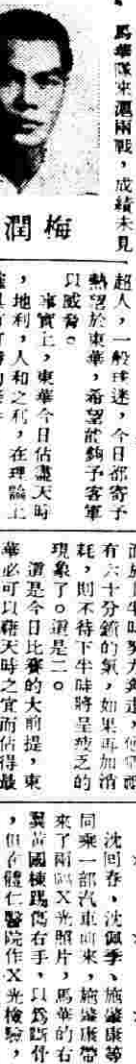 馬華隊來滬兩戰，成績未見
潤梅
超人，一般球迷，今日都寄予
熱望於東華，希望能夠予客軍
以威脅。
事實上，東華今日佔盡天時
，地利，人和之利，在理論上
有六十分鐘的氣，如果再加消
耗，則不待下半時將呈疲乏的
現象了。這是二。
這是今日比賽的大前提，東
華必可以藉天時之宜而佔得最
沈回春、沈佩季、施肇康等
同乘一部汽車而來，施肇康帶
來了兩張X光照片，馬華的右
翼黃國棟踢傷右手，以為斷骨
，但在體仁醫院作X光檢驗，